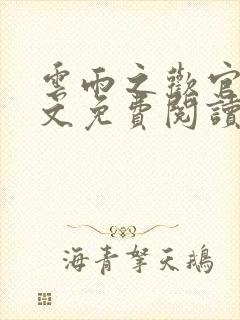 雲雨之歡官
文免費閱讀
海青拏天鵝